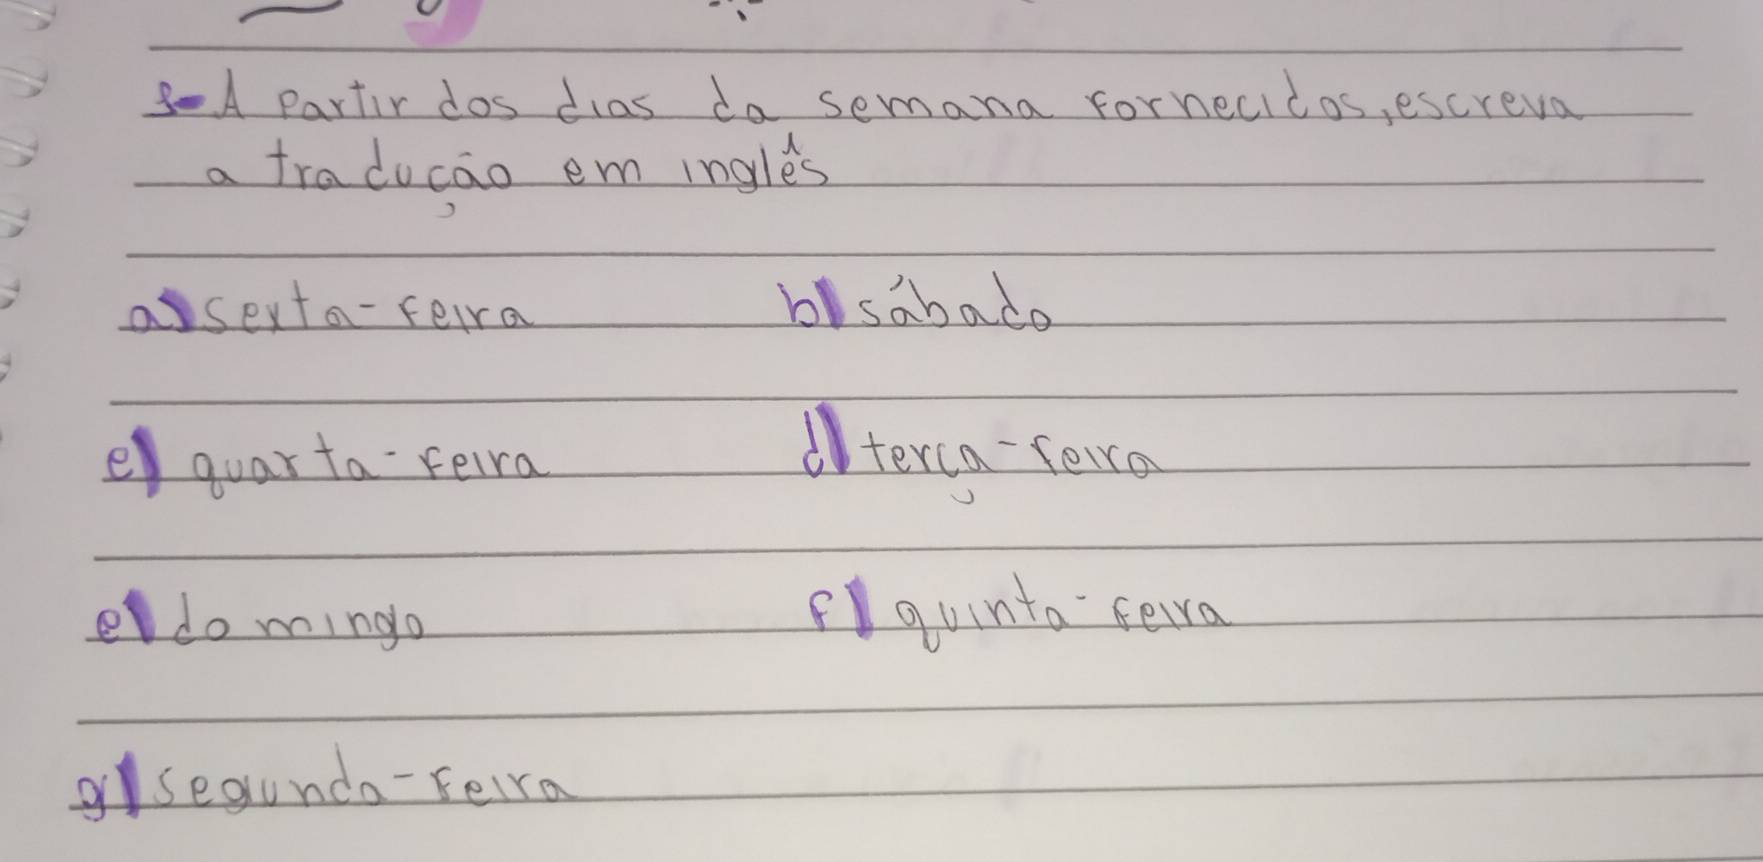 A partir dos dias da semana fornecidos, escreva
a tradução em inglês
a) sexta-feira b) sábado
e) quarta-feira d) terça-feira
e) domingo f) quinta-feira
g) segunda-feira